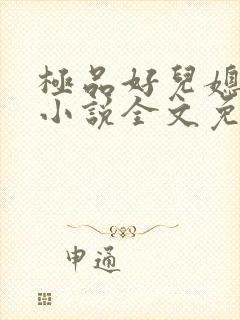 極品好兒媳
小說全文免
申通